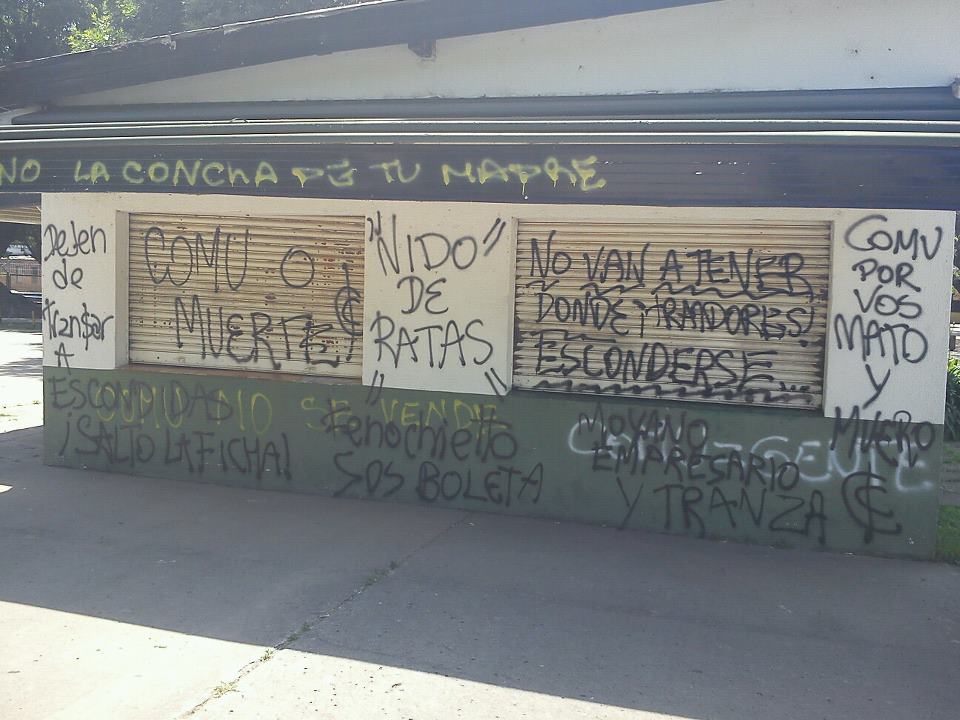 NO LA CONCHA DE TU MADRE
Dejen
de
tran$ar
A
ESCONDIDAS
¡SALTO LA FICHA!
COMU O
MUERTE!
"NIDO"
DE
RATAS
NO VAN A TENER
DONDE ¡TRAIDORES!
ESCONDERSE...
COMU
POR
VOS
MATO
Y
MUERO
COMU NO SE VENDE
Fenochietto
SOS BOLETA
MOYANO
EMPRESARIO
Y TRANZA
GENTE